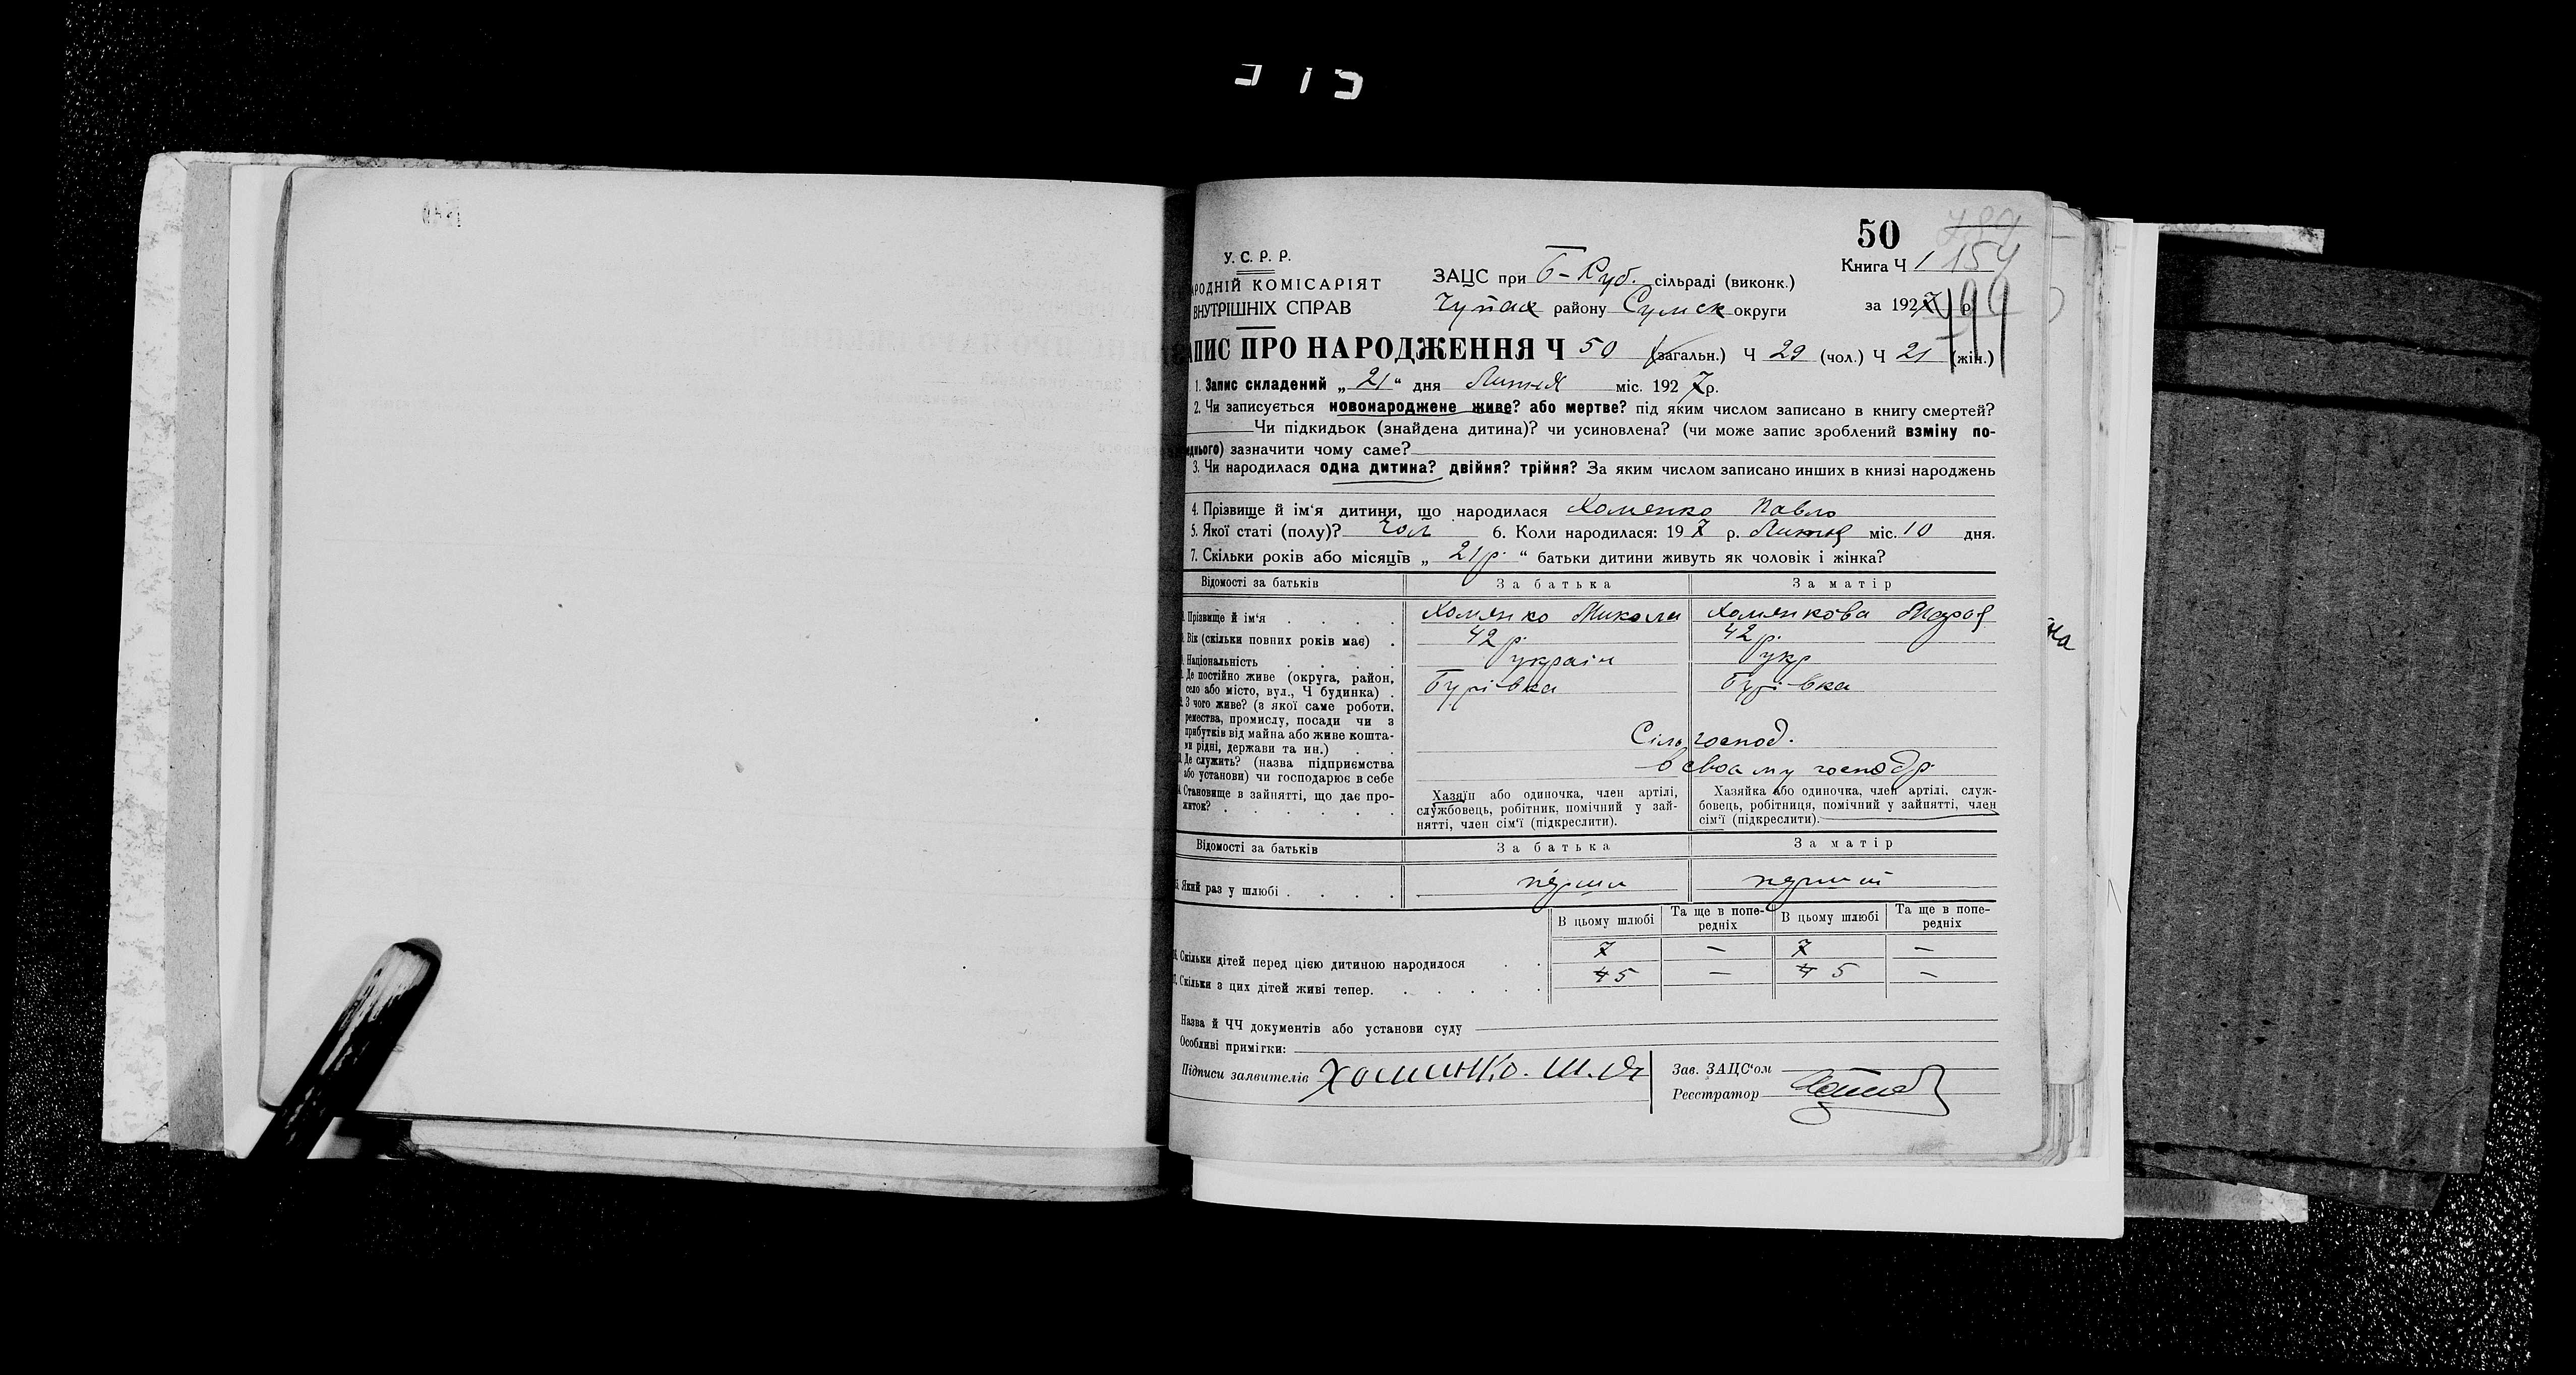 50
У. С. Р. Р.
Книга Ч 1 154
РОДНІЙ КОМІСАРІЯТ
ВНУТРІШНІХ СПРАВ
ЗАЦС при Б-Руб. сільраді (виконк.)
Чупах району Сумск округи
за 1927 р.
ПИС ПРО НАРОДЖЕННЯ Ч 50 (загальн.) Ч 29 (чол.) Ч 21 (жін.)
1. Запис складений „ 21 “ дня міс. 1927 р.
2. Чи записується новонароджене живе? або мертве? під яким числом записано в книгу смертей?
Чи підкидьок (знайдена дитина)? чи усиновлена? (чи може запис зроблений взміну по-
днього) зазначити чому саме?
3. Чи народилася одна дитина? двійня? трійня? За яким числом записано инших в книзі народжень
4. Прізвище й ім‘я дитини, що народилася Хоменко Павло
5. Якої статі (полу)? Чол 6. Коли народилася: 19 7 р. міс. 10 дня.
7. Скільки років або місяців „ 21 р. “ батьки дитини живуть як чоловік і жінка?
Відомості за батьків За батька За матір
Прізвище й ім‘я Хоменко Микола Хоменкова
Вік (скільки повних років має) 42 р. 42 р.
Національність україн укр
Де постійно живе (округа, район,
село або місто, вул., Ч будинка)
З чого живе? (з якої саме роботи,
ремества, промислу, посади чи з
прибутків від майна або живе кошта-
ми рідні, держави та ин.) Сільгоспод.
Де служить? (назва підприємства
або установи) чи господарює в себе в своему господр
Становище в зайнятті, що дає про-
житок?
Хазяїн або одиночка, член артілі,
службовець, робітник, помічний у зай-
нятті, член сім‘ї (підкреслити).
Хазяйка або одиночка, член артілі, служ-
бовець, робітниця, помічний у зайнятті, член
сім‘ї (підкреслити).
Відомості за батьків За батька За матір
Який раз у шлюбі перши перший
В цьому шлюбі Та ще в попе-редніх В цьому шлюбі Та ще в попе-редніх
Скільки дітей перед цією дитиною народилося 7 — 7 —
Скільки з цих дітей живі тепер. 5 — 5 —
Назва й ЧЧ документів або установи суду
Особливі примітки:
Підписи заявителів
Зав. ЗАЦС‘ом
Реєстратор
на